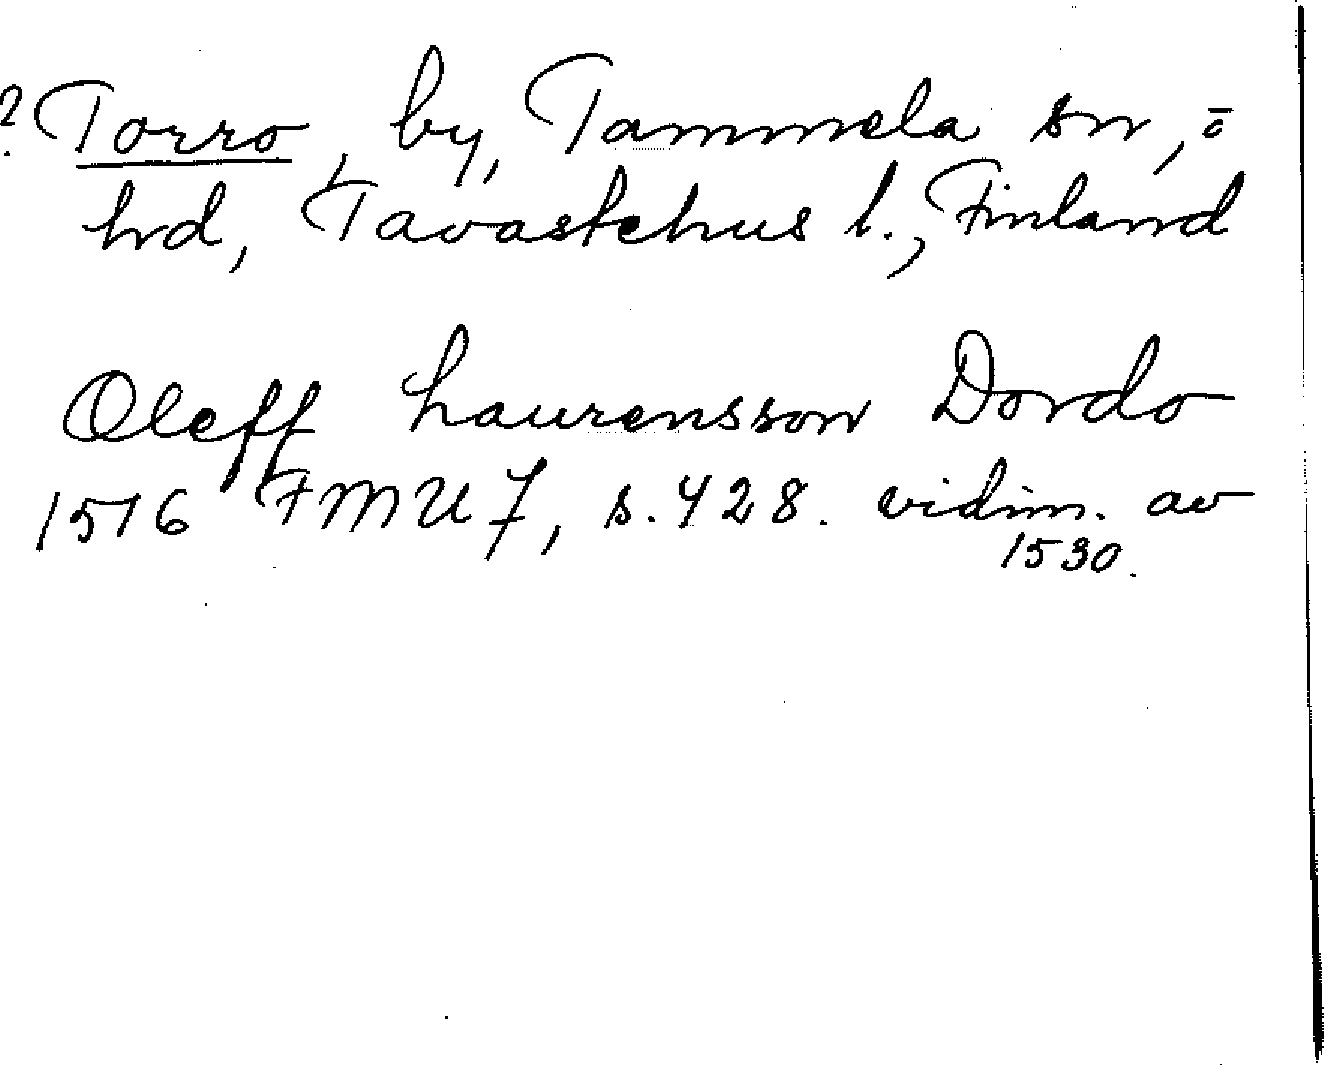 ? Torro, by, Tammela sn, o
hd, Tavastehus l., Finland
Oleff Laurensson Dordo
1516 FMU 7, s. 428. vidim. av
1530.